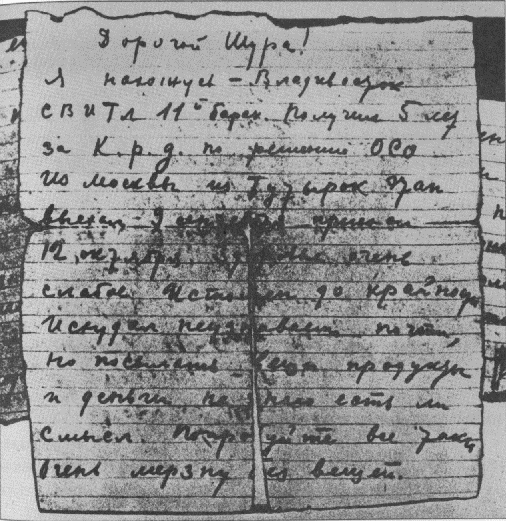 Дорогой Шура!
Я нахожусь – Владивосток
СВИТЛ 11й барак. Получил 5 лет
за К.р.д. по решению ОСО
Из Москвы из Бутырок этап
выехал 9 сентября приехал
12 октября. Здоровье очень
слабое. Истощен до крайности
Исхудал неузнаваем почти,
но посылать вещи продукты
и деньги не знаю есть ли
смысл. Попробуйте все таки,
Очень мерзну без вещей.